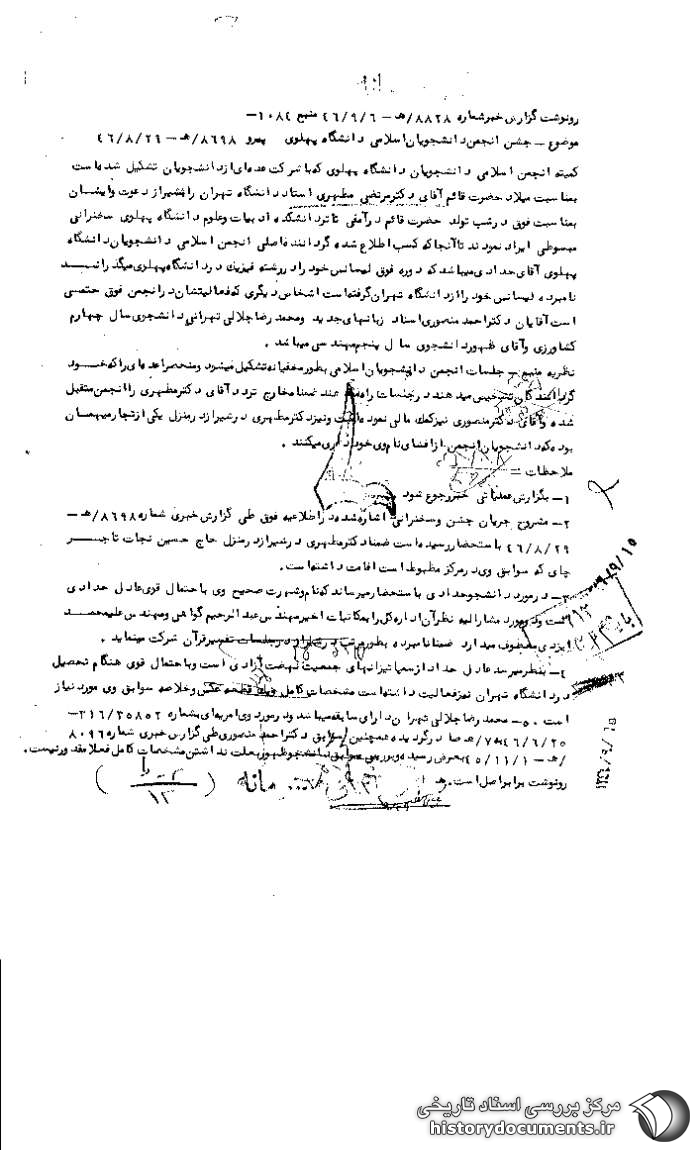 رونوشت گزارش خبر شماره ۸۸۲۸/هـ – ۴۶/۹/۶ منبع ۱۰۸۴–
موضوع – جشن انجمن دانشجویان اسلامی دانشگاه پهلوی پیرو ۸۶۹۸/هـ – ۴۶/۸/۲۹
کمیته انجمن اسلامی دانشجویان دانشگاه پهلوی که با شرکت عده‌ای از دانشجویان تشکیل شده است
بمناسبت میلاد حضرت قائم آقای دکتر مرتضی مطهری استاد دانشگاه تهران را بشیراز دعوت و ایشان
بمناسبت فوق در شب تولد حضرت قائم در آمفی تاتر دانشکده ادبیات و علوم دانشگاه پهلوی سخنرانی
مبسوطی ایراد نمودند تا آنجا که کسب اطلاع شده گرداننده اصلی انجمن اسلامی دانشجویان دانشگاه
پهلوی آقای حدادی میباشد که دوره فوق لیسانس خود را در رشته فیزیک در دانشگاه پهلوی میگذرانـــد
نامبرده لیسانس خود را از دانشگاه تهران گرفته است اشخاص دیگری که فعالیتشان در انجمن فوق حتمی
است آقایان دکتر احمد منصوری استاد زبانهای جدید و محمد رضا جلالی تهرانی دانشجوی سال چهارم
کشاورزی و آقای ظهور دانشجوی سال پنجم مهندسی میباشد .
نظریه منبع – جلسات انجمن دانشجویان اسلامی بطور مخفیانه تشکیل میشود و منحصرا عده‌ای را که خـــود
گردانندگان تشخیص میدهند در جلسات راه میدهند ضمنا مخارج تردد آقای دکتر مطهری را انجمن متقبل
شده و آقای دکتر منصوری نیز کمک مالی نموده است و نیز دکتر مطهری در شیراز در منزل یکی از تجار میهمان
بوده که دانشجویان انجمن از افشای نام وی خودداری میکنند .
ملاحظات –
۱– بگزارش عملیاتی خبر رجوع شود
۲– مشروح جریان جشن و سخنرانی اشاره شده در اطلاعیه فوق طی گزارش خبری شماره ۸۶۹۸/هـ –
۴۶/۸/۲۹ باستحضار رسیده است ضمنا دکتر مطهری در شیراز در منزل حاج حسین نجات تاجـــر
چای که سوابق وی در مرکز مظبوط است اقامت داشته است .
۳– در مورد دانشجو حدادی باستحضار میرساند که نام و شهرت صحیح وی باحتمال قوی عادل حدادی
است و در مورد مشارالیه نظر آن اداره کل را بمکاتبات اخیر مهندس عبدالرحیم گواهی و مهندس علیمحمد
ایزدی معطوف میدارد ضمنا نامبرده بطور مرتب در شیراز در جلسات تفسیر قرآن شرکت مینماید .
۴– بنظر میرسد عادل حداد از سمپاتیزانهای جمعیت نهضت آزادی است و باحتمال قوی هنگام تحصیل
در دانشگاه تهران نیز فعالیت داشته است مشخصات کامل قطعه عکس و خلاصه سوابق وی مورد نیاز
است ۵۰– محمد رضا جلالی تهرانی دارای سابقه میباشد و در مورد وی امریه‌ای بشماره ۳۱۶/۳۵۸۵۲–
۴۶/۶/۲۵ صادر گردیده همچنین سوابق دکتر احمد منصوری طی گزارش خبری شماره ۸۰۹۶
/هـ – ۴۵/۱۱/۱ بعرض رسیده و بررسی سوابق دانشجو ظهور بعلت نداشتن مشخصات کامل فعلا مقدور نیست .
رونوشت برابر اصل است . هـ
۱۳
۱۳۴۶/۹/۱۵
مرکز بررسی اسناد تاریخی
historydocuments.ir